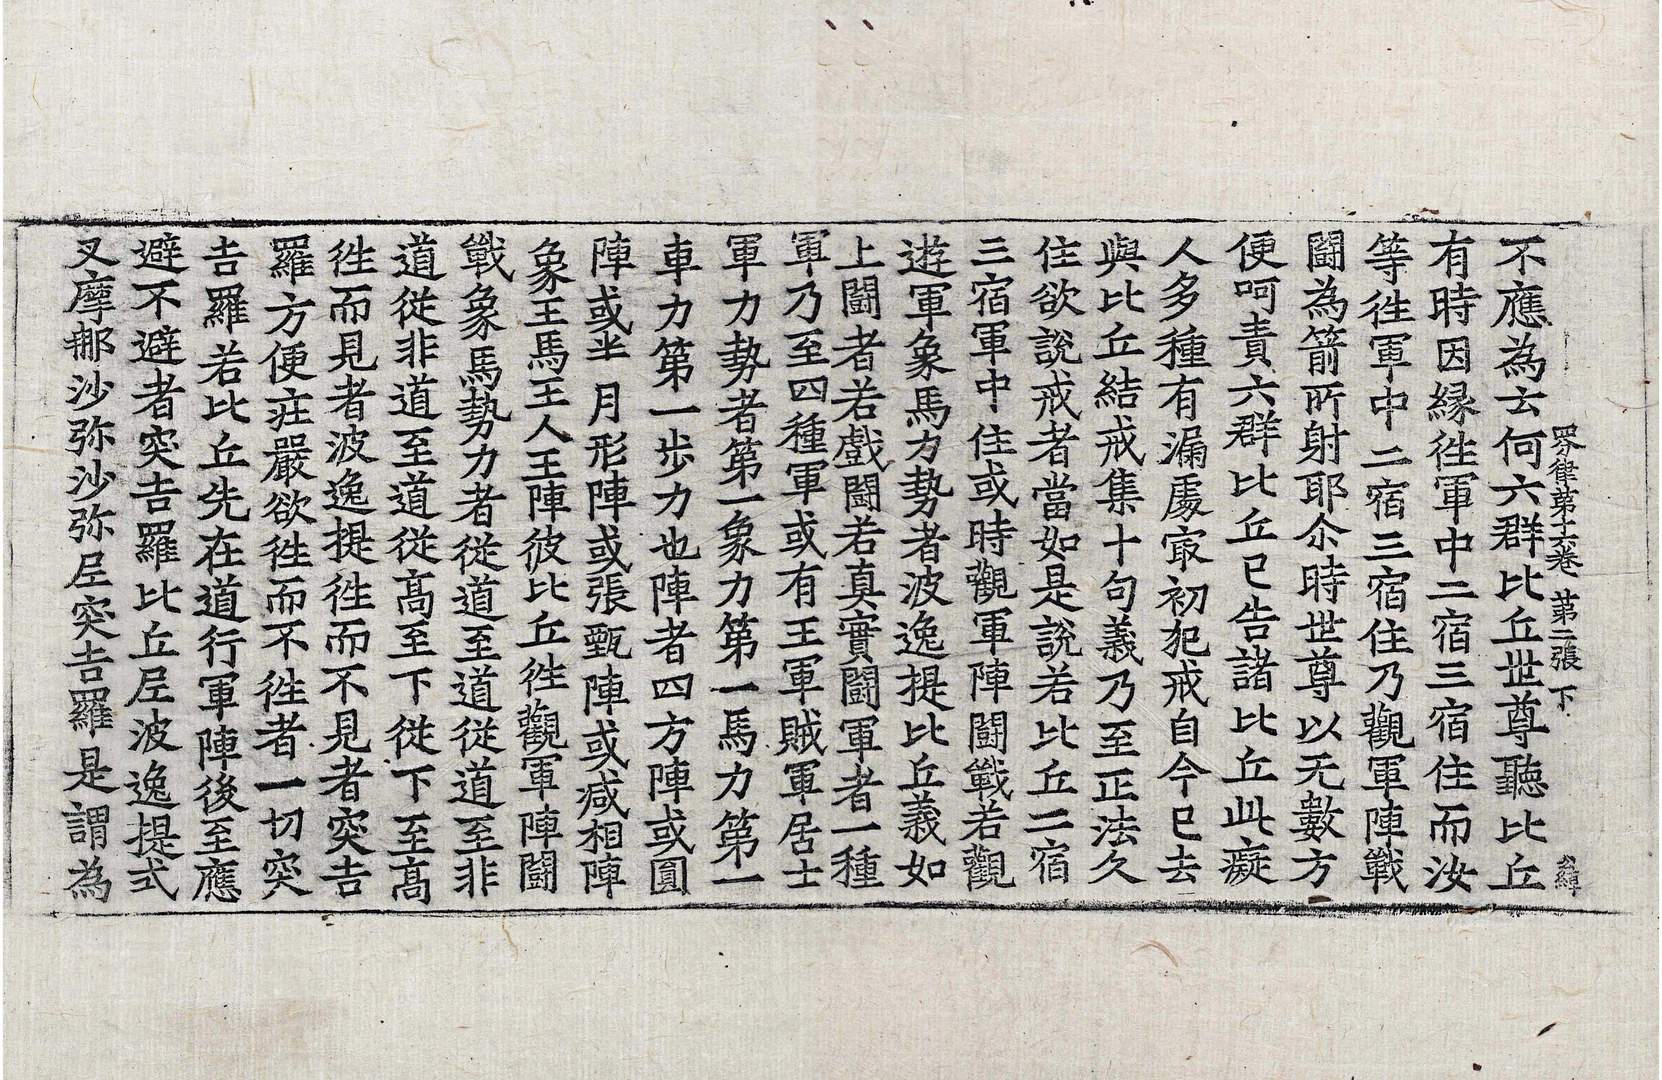 不應為云何六群比丘世尊聽比丘
四分律第十六卷 第二張 下
有時因縁徃軍中二宿三宿住而汝
等徃軍中二宿三宿住乃觀軍陣戰
鬪為箭所射耶尒時世尊以无數方
便呵責六群比丘已告諸比丘此癡
人多種有漏處㝡初犯戒自今已去
與比丘結戒集十句義乃至正法久
住欲說戒者當如是說若比丘二宿
三宿軍中住或時觀軍陣鬪戰若觀
遊軍象馬力勢者波逸提比丘義如
上鬪者若戲鬪若真實鬪軍者一種
軍乃至四種軍或有王軍賊軍居士
軍力勢者第一象力第一馬力第一
車力第一步力也陣者四方陣或圓
陣或半月形陣或張甄陣或減相陣
象王馬王人王陣彼比丘徃觀軍陣鬪
戰象馬勢力者從道至道從道至非
道從非道至道從高至下從下至高
徃而見者波逸提徃而不見者突吉
羅方便莊嚴欲徃而不徃者一切突
吉羅若比丘先在道行軍陣後至應
避不避者突吉羅比丘尼波逸提式
叉摩那沙弥沙弥尼突吉羅是謂為